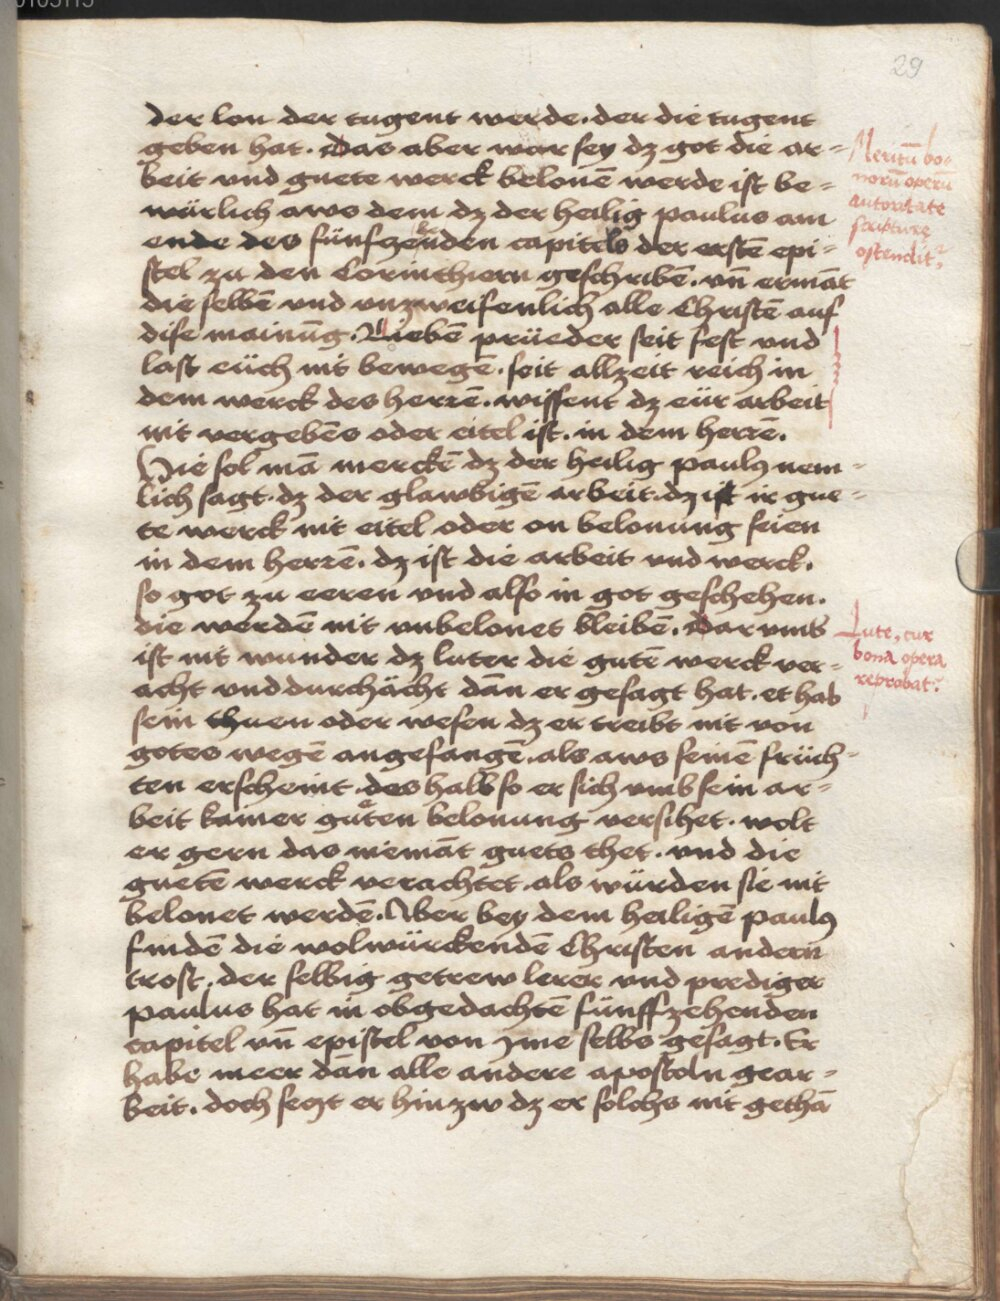 29
der lon der tugent werde. der die tugent
geben hat. Das aber war sey dz got die ar-
beit vnd guete werck belonē werde ist be-
würlich aws dem dz der heilig paulus am
ende des fünfzehēden capitels der erstē epi-
stel zu den Corinthiern geschribē. vn̄ ermāt
die selbē vnd vnzweifenlich alle Christē auf
dise mainūg. Lieben prüeder seit fest vnd
last eüch nit bewegē. seit allzeit reich in
dem werck des herrē. wissent dz eür arbeit
nit vergebēs oder eitel ist. in dem herrē.
Hie sol mā merckē dz der heilig paulꝰ nem-
lich sagt. dz der glawbigē arbeit. dz ist ir gue-
te werck nit eitel oder on belonung seien
in dem herrē. dz ist die arbeit vnd werck.
so got zu eeren vnd also in got geschehen.
die werdē nit vnbelonet bleibē. Darumb
ist nit wunder dz luter die gutē werck ver-
acht vnd durchächt dān er gesagt hat. et hab
sein thuen oder wesen dz er treibt nit von
gotes wegē angefangē. als aws seinē früch-
ten erscheint. des halb so er sich vmb sein ar-
beit kainer gůten belonung versihet. wolt
er gern das niemāt guets thet. vnd die
guetē werck verachtet. als würden sie nit
belonet werdē. Aber bey dem heiligē paulꝰ
findē die wolwürckendē Christen andern
trost. der selbig getrew lerer vnd prediger
paulus hat in obgedachtē fünffzehenden
capitel vn̄ epistel von yme selbs gesagt. Er
habe meer dān alle andere apostoln gear-
beit. doch setzt er hinzw dz er solchs nit gethā
Meritū bo-
norū operū
autoritate
scripture
ostendit²
Lute. cur
bona opera
reprobat²